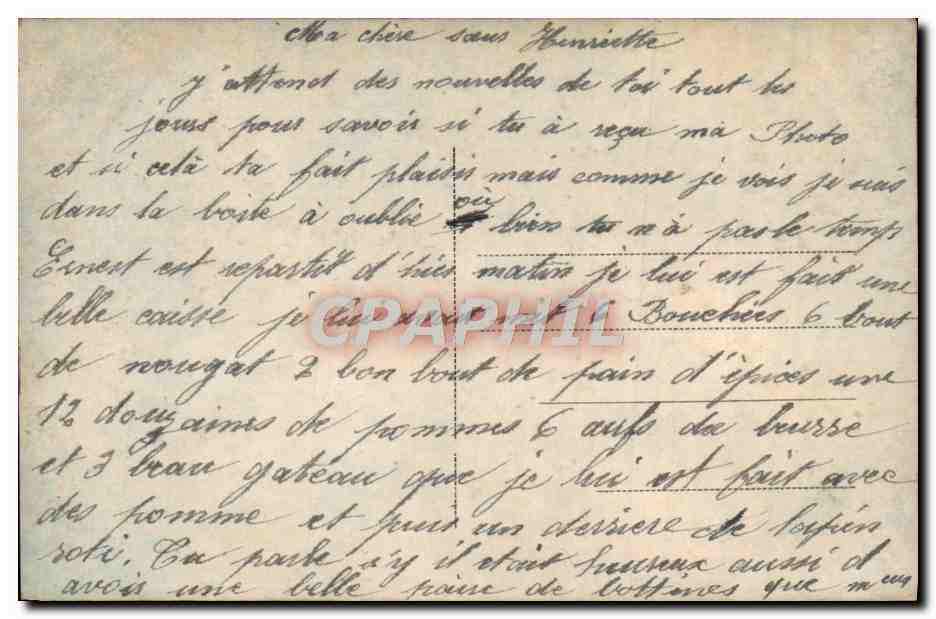 Ma chère sœur Henriette
j'attend des nouvelles de toi tout les
jours pour savoir si tu à reçu ma Photo
et si celà ta fait plaisir mais comme je vois je suis
dans ta boite à oublie où bien tu n'à pas le temps
Ernest est repartit d'hier matin je lui est fait une
belle caisse je lui avait mit 6 Bouchées 6 bout
de nougat 2 bon bout de pain d'épices une
12 douzaines de pommes 6 œufs du beurre
et 3 beau gateau que je lui est fait avec
des pomme et puis un derriere de lapin
roti. Tu parle s'y il était heureux aussi d
avoir une belle paire de bottines que
CPAPHIL